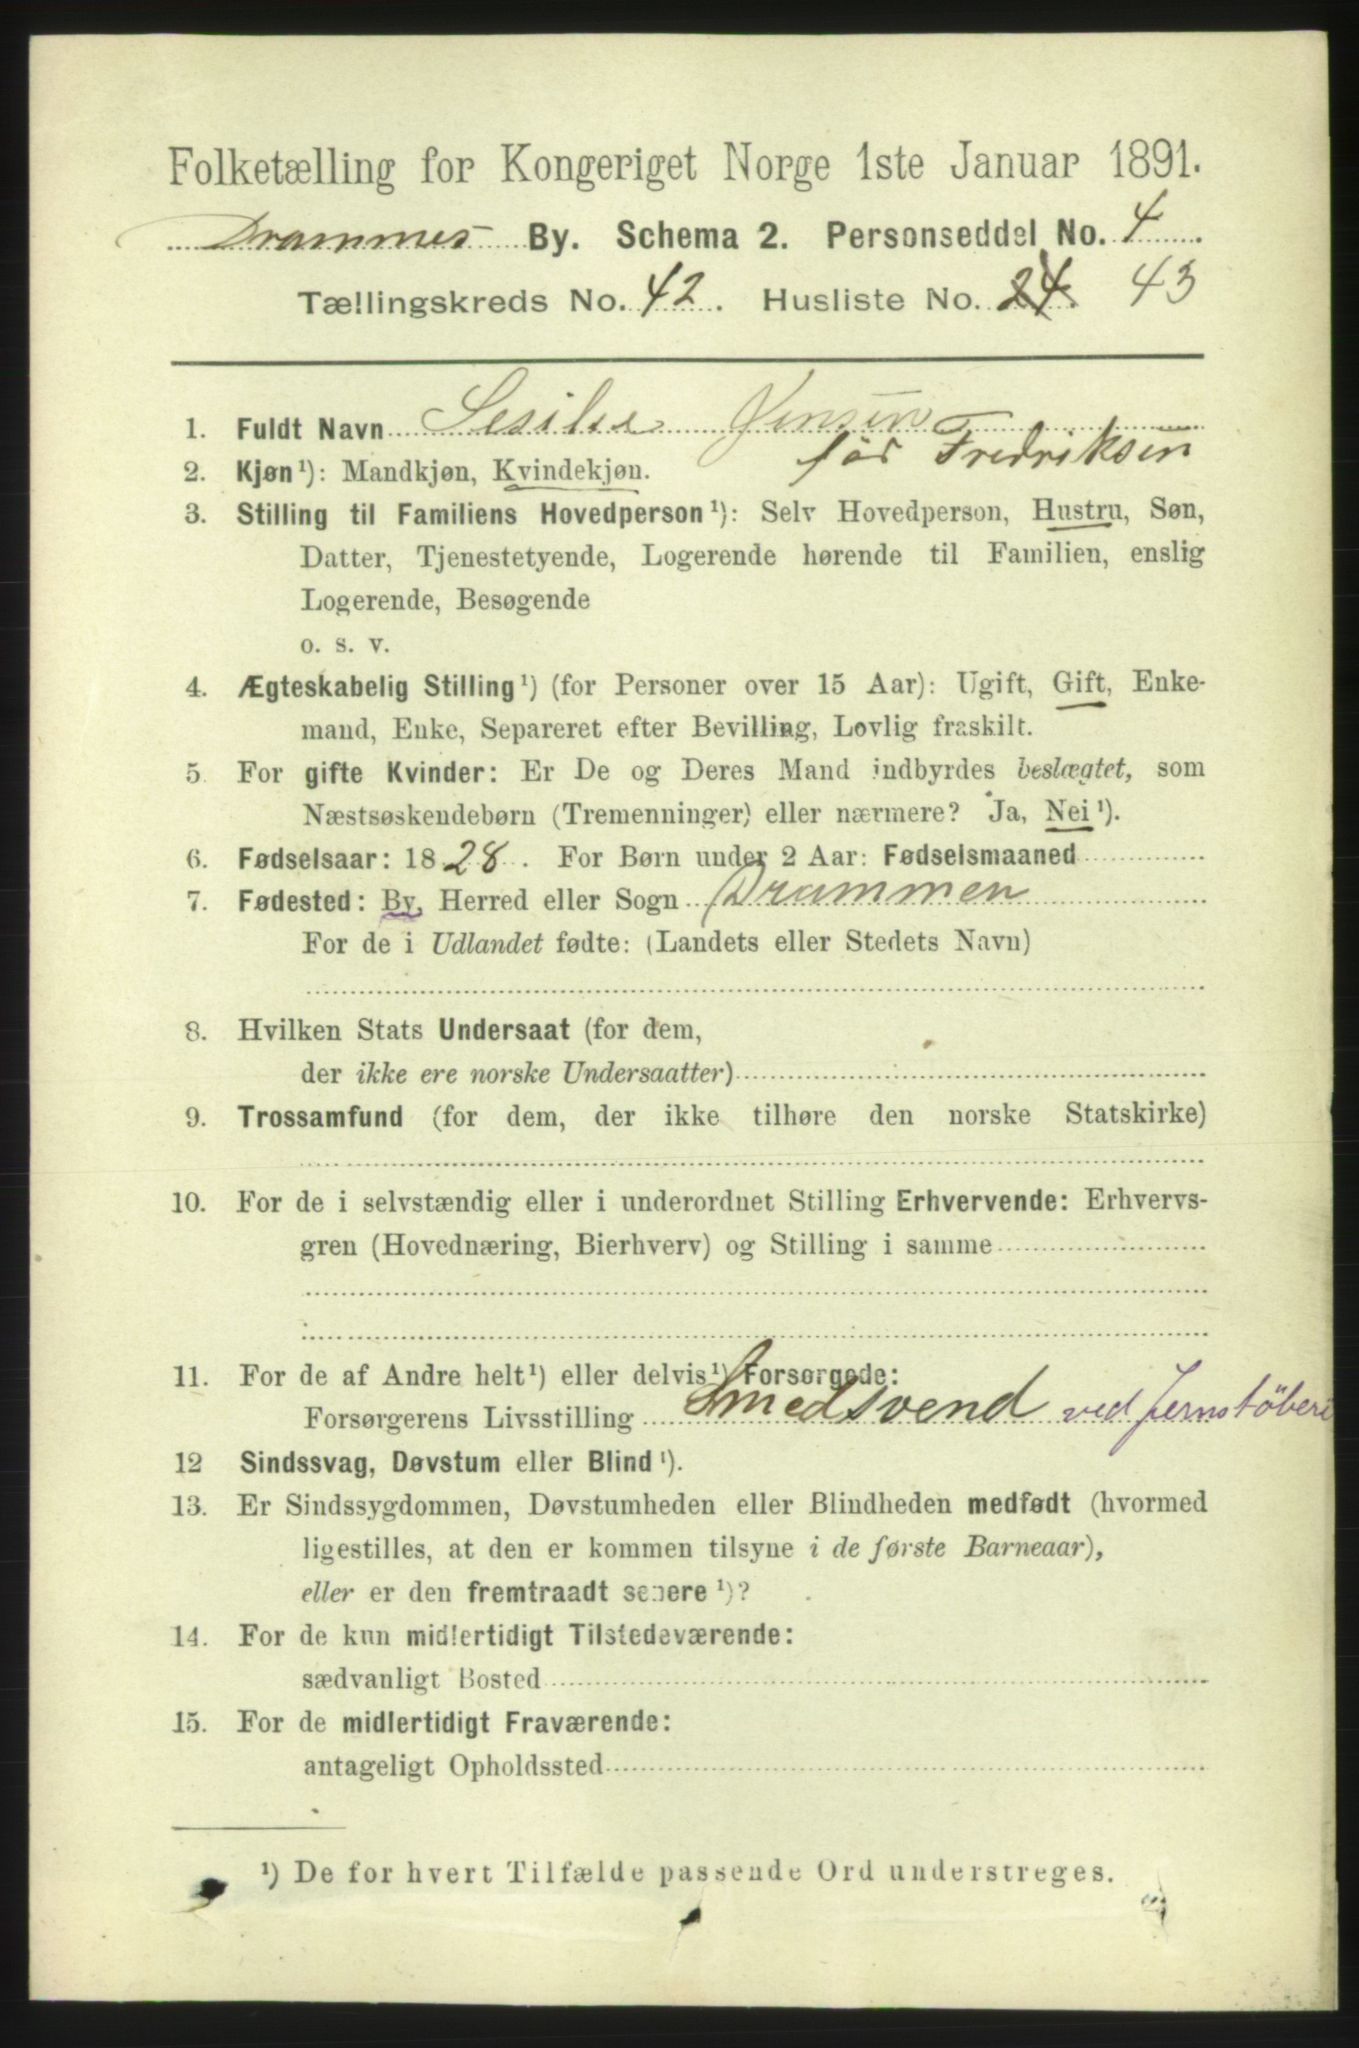 Folketælling for Kongeriget Norge 1ste Januar 1891.
Drammes By. Schema 2. Personseddel No. 4
Tællingskreds No. 42. Husliste No. 24. 43
1. Fuldt Navn Sesilie Jensen
før Fredriksen
2. Kjøn¹): Mandkjøn, Kvindekjøn.
3. Stilling til Familiens Hovedperson¹): Selv Hovedperson, Hustru, Søn,
Datter, Tjenestetyende, Logerende hørende til Familien, enslig
Logerende, Besøgende
o. s. v.
4. Ægteskabelig Stilling¹) (for Personer over 15 Aar): Ugift, Gift, Enke-
mand, Enke, Separeret efter Bevilling, Lovlig fraskilt.
5. For gifte Kvinder: Er De og Deres Mand indbyrdes beslægtet, som
Næstsøskendebørn (Tremenninger) eller nærmere? Ja, Nei¹).
6. Fødselsaar: 1828. For Børn under 2 Aar: Fødselsmaaned
7. Fødested: By, Herred eller Sogn Drammen
For de i Udlandet fødte: (Landets eller Stedets Navn)
8. Hvilken Stats Undersaat (for dem,
der ikke ere norske Undersaatter)
9. Trossamfund (for dem, der ikke tilhøre den norske Statskirke)
10. For de i selvstændig eller i underordnet Stilling Erhvervende: Erhvervs-
gren (Hovednæring, Bierhverv) og Stilling i samme
11. For de af Andre helt¹) eller delvis¹) Forsørgede:
Forsørgerens Livsstilling Smedsvend ved Jernstöberi
12 Sindssvag, Døvstum eller Blind¹).
13. Er Sindssygdommen, Døvstumheden eller Blindheden medfødt (hvormed
ligestilles, at den er kommen tilsyne i de første Barneaar),
eller er den fremtraadt senere¹)?
14. For de kun midlertidigt Tilstedeværende:
sædvanligt Bosted
15. For de midlertidigt Fraværende:
antageligt Opholdssted
¹) De for hvert Tilfælde passende Ord understreges.